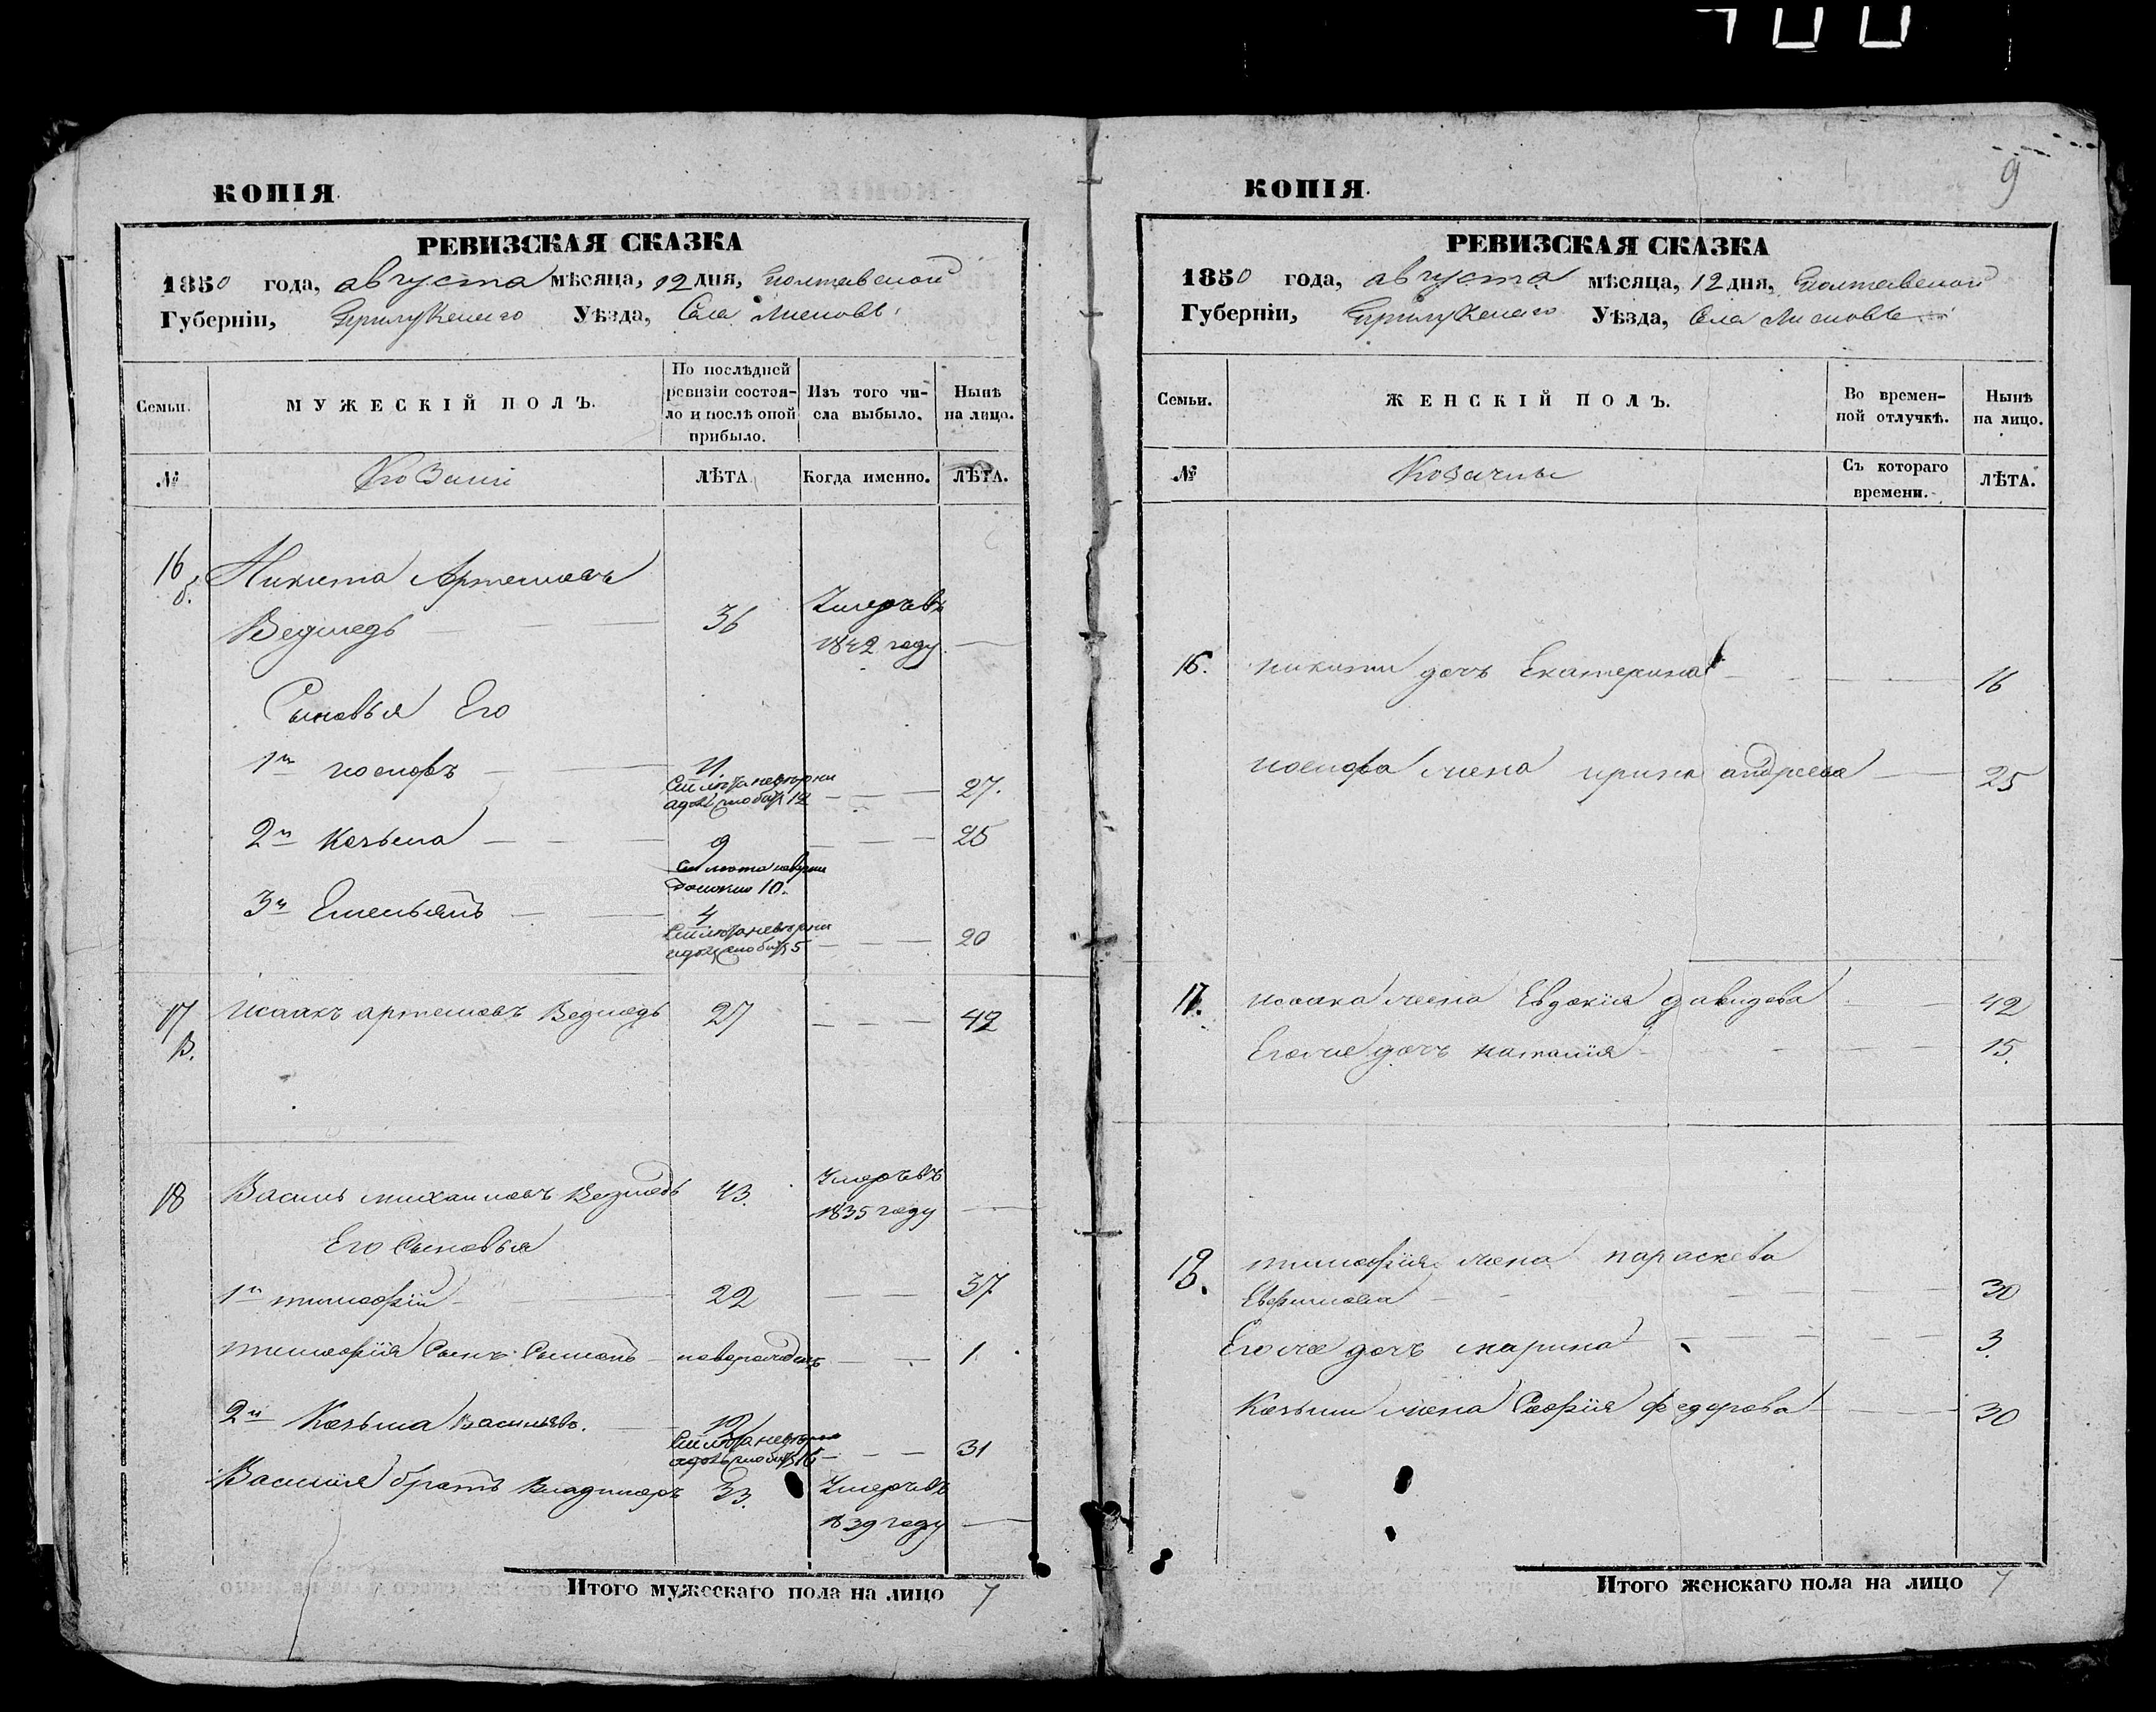 400
КОПІЯ.
РЕВИЗСКАЯ СКАЗКА
1850 года, августа мѣсяца, 12 дня, Полтавской
Губерніи, Прилукскаго Уѣзда, Села
Семьи.
МУЖЕСКІЙ ПОЛЪ.
По послѣдней ревизіи состоя-
ло и послѣ оной прибыло.
Изъ того чи-
сла выбыло.
Нынѣ
на лицо.
№
Козаки
ЛѢТА
Когда именно.
ЛѢТА.
16 Никита Артемовъ
Ведмедь 36 Умеръ въ
1842 году
Сыновья Его
1й иосифъ 11 12 27.
2й Козьма 9 10. 25
3й Емельянъ 4 5 20
17 Исаакъ артемовъ Ведмедь 27 42
В.
18 Василь михаиловъ Ведмедь 43. Умеръ въ
1835 году
Его Сыновья
1й тимофій 22 37
тимофія Сынъ Симонъ новорожденъ 1
2й Козьма Васильевъ. 31
Василия братъ Владимеръ 33. Умеръ въ
1839 году
Итого мужескаго пола на лицо 7
9
КОПІЯ.
РЕВИЗСКАЯ СКАЗКА
1850 года, августа мѣсяца, 12 дня, Полтавской
Губерніи, Прилукскаго Уѣзда, Села
Семьи.
ЖЕНСКІЙ ПОЛЪ.
Во времен-
ной отлучкѣ.
Нынѣ
на лицо.
№
Козачки
Съ котораго
времени.
ЛѢТА.
16. никиты дочь Екатерина 16
иосифа жена ирина андреева 25
17. исаака жена Евдокія давидова 42
Егоже дочь наталія 15.
18. тимофія жена параскева
Евфимова 30
Егоже дочь марина 3
Козьмы жена Софія федорова 30
Итого женскаго пола на лицо 7